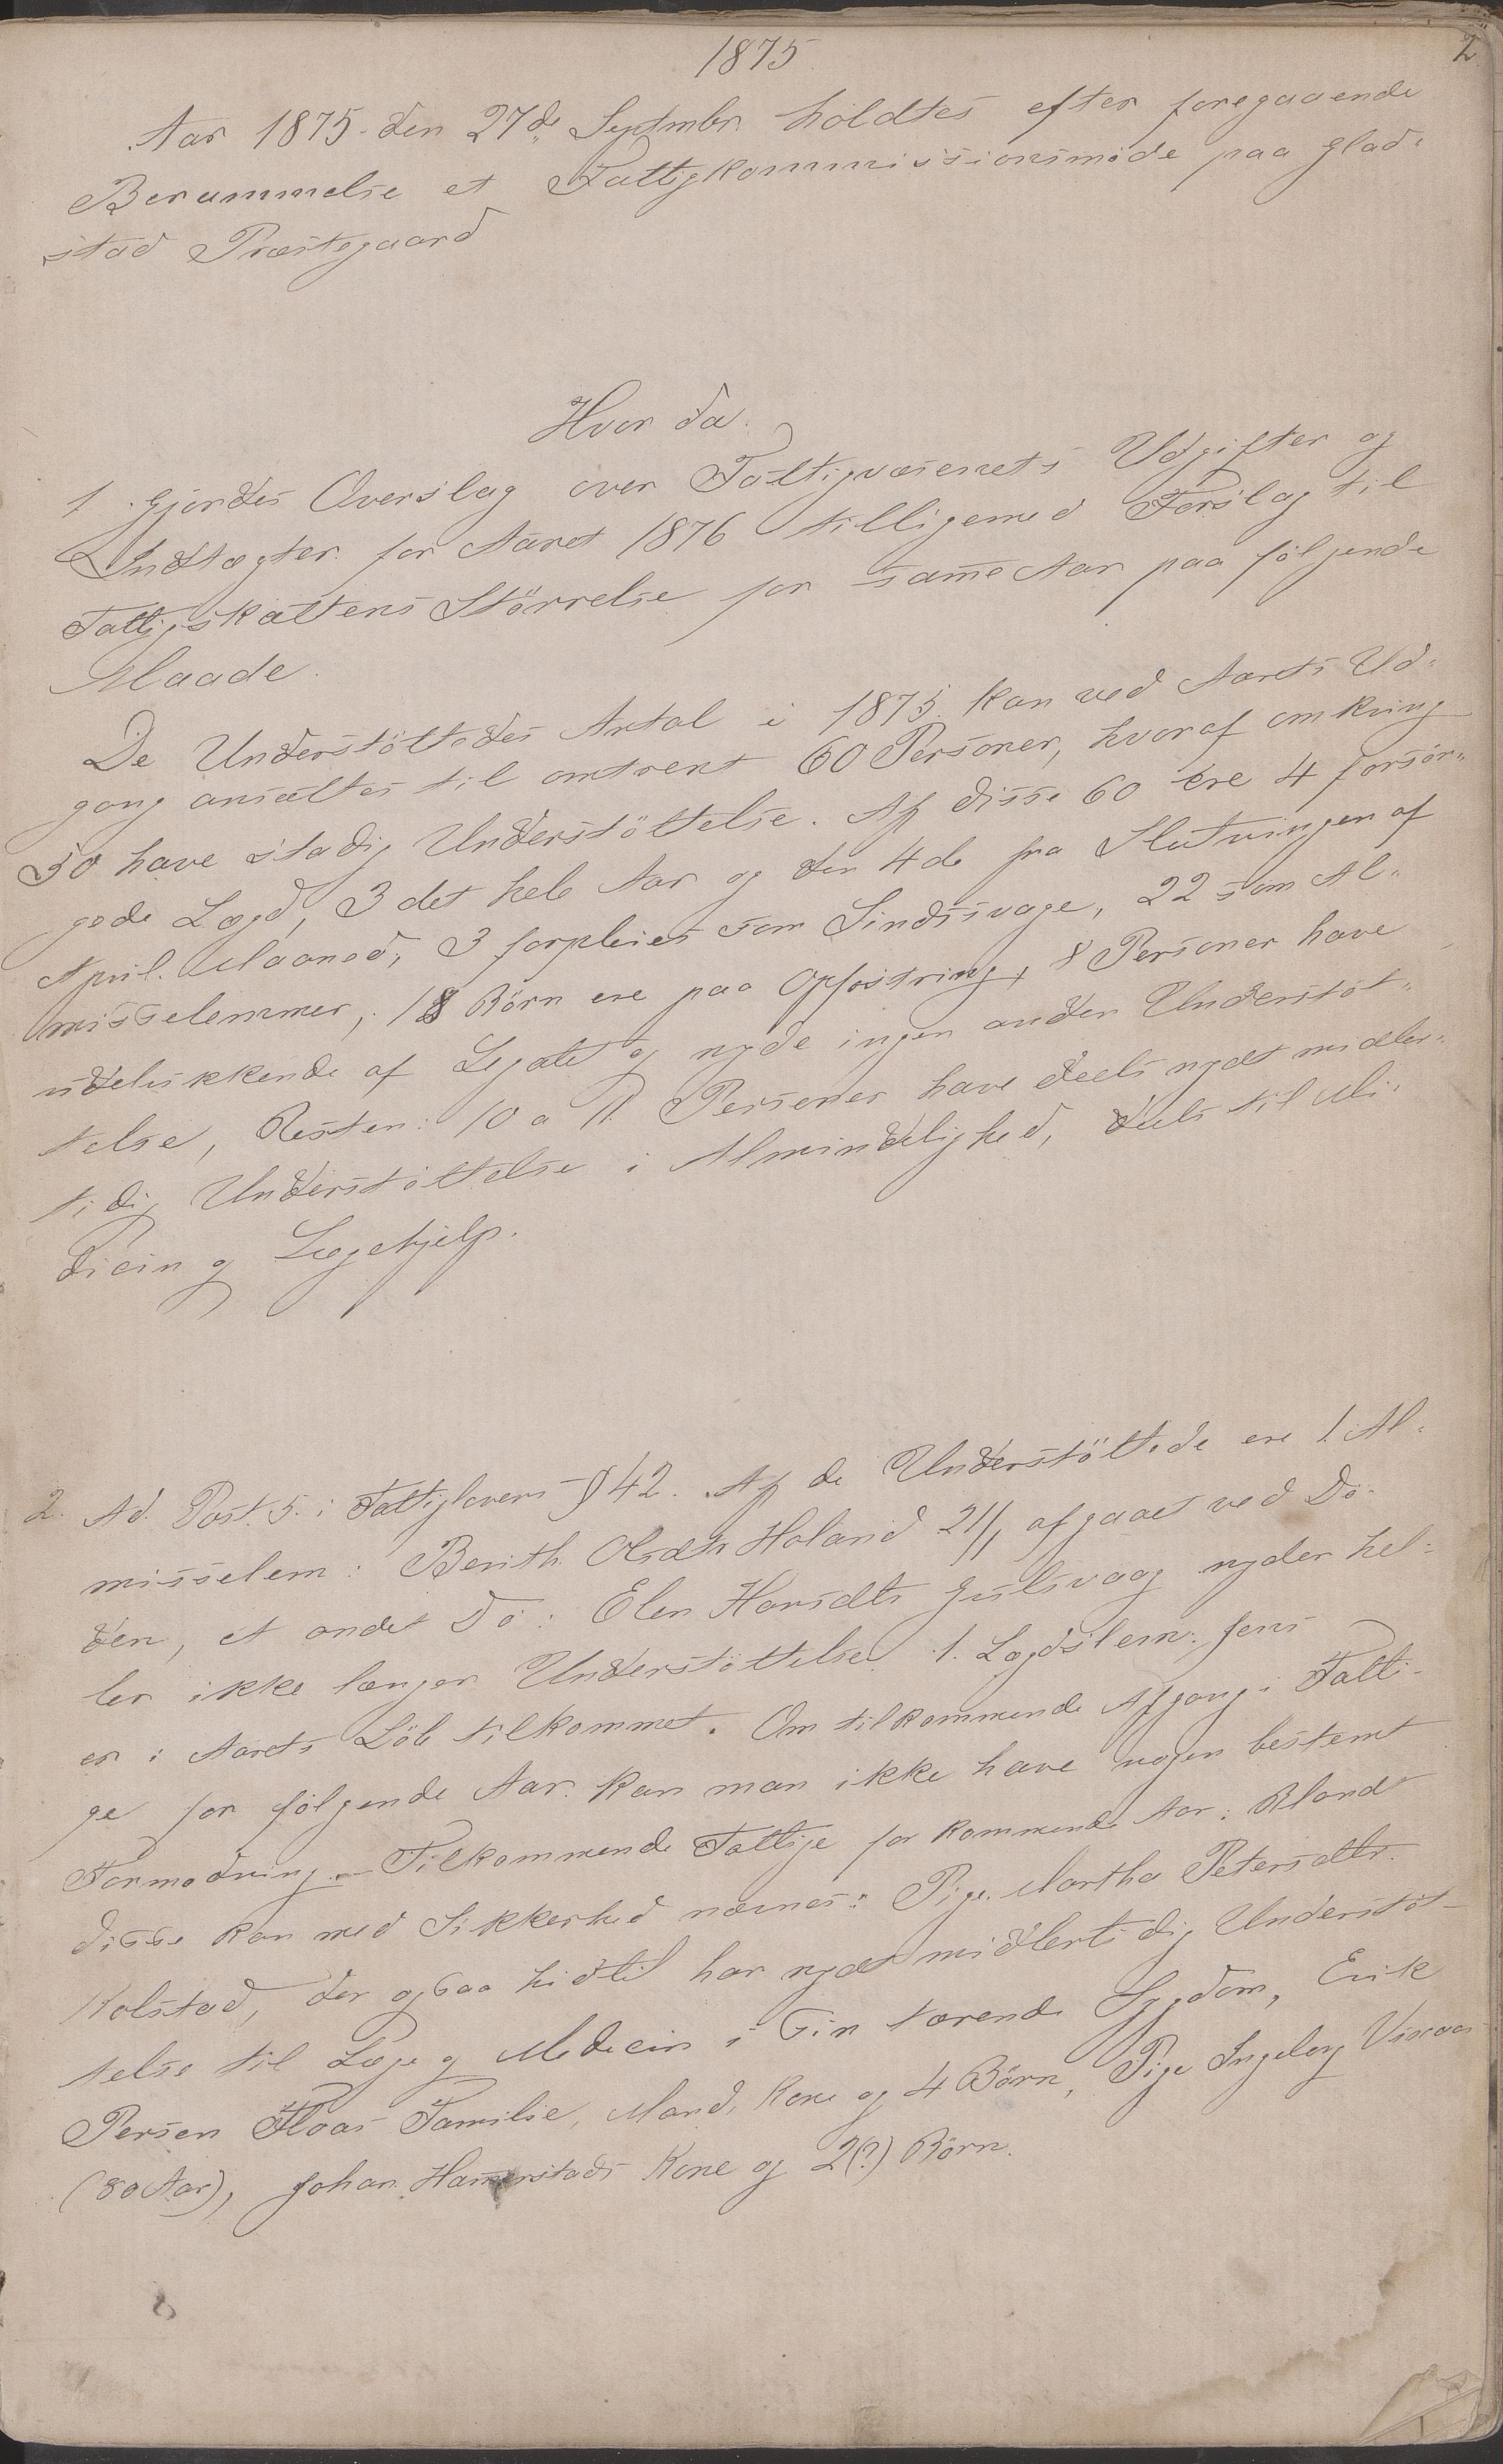 1875.
2.
Aar 1875 den 27de Septmbr. holdtes efter foregaaende
Berammelse et Fattigkommissionsmöde paa Glad-
stad Præstegaard
Hvor da.
1. Gjordes Overslag over Fattigvæsenets Udgifter og
Indtægter for Aaret 1876 tilligemed Forslag til
Fattigskattens Störrelse for samme Aar paa fölgende
Maade.
De Understöttedes Antal i 1875 kan ved Aarets Ud-
gang ansættes til omtrent 60 Personer, hvoraf omkring
50 have stadig Understöttelse. Af disse 60 ere 4 forsör-
gede Lægd, 3 det hele Aar og den 4de fra Slutningen af
April Maaned, 3 forpleies som Sindssvage, 22 som Al-
misselemmer, 18 Börn ere paa Opfostring, 8 Personer have
udelukkende af Legatet og nyde ingen anden Understöt-
telse, Resten: 10 a 11 Personer have deels nydt midler-
tidig Understöttelse i Almindelighed, deels til Me-
dicin og Lægehjelp.
2. Ad. Post. 5. i Fattiglovens § 42. Af de Understöttede ere 1. Al-
misselem: Berith Olsdtr Holand 21/1 afgaaet ved Dö-
den, et andet Do: Elen Hansdtr Gulsvaag nyder hel-
ler ikke længer Understöttelse. 1. Lægdslem: Jens
er i Aarets Löb tilkommet. Om tilkommende Afgang i Fatti-
ge for fölgende Aar kan man ikke have nogen bestemt
Formodning. – Tilkommende Fattige for kommende Aar: Blandt
disse kan med Sikkerhed nævnes: Pige Martha Petersdtr.
Kolstad, der ogsaa hidtil har nydt midlertidig Understöt-
telse til Læge og Medicin i sin tærende Sygdom, Erik
Persen Floas Familie, Mand, Kone og 4 Börn, Pige Ingeborg
(80 Aar), Johan Hamnstads Kone og 2(?) Börn.